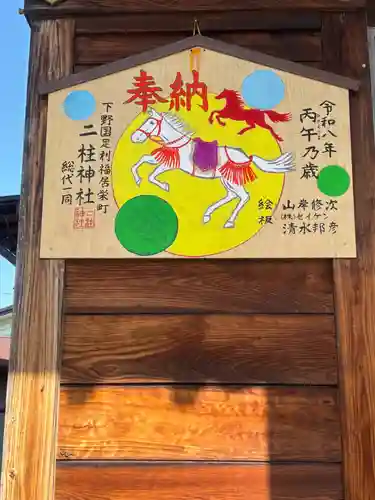 奉納
令和八年
丙午乃歳
下野国足利福居栄町
二柱神社
総代一同
絵板
山岸修次
(株)セイケン
清水邦彦